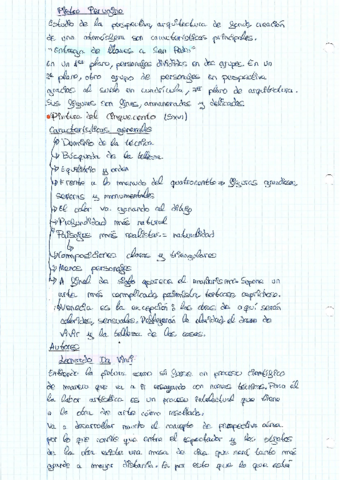 Pietro Perugino
Estudio de la perspectiva, arquitectura de fondo, creación
de una atmósfera son características principales.
"Entrega de llaves a San Pedro"
En un 1er plano, personajes divididos en dos grupos. En un
2º plano, otro grupo de personajes en perspectiva
gracias al suelo en cuadrícula, 3er plano de arquitectura.
Sus figuras son finas, amaneradas y delicadas
Pintura del Cinquecento (SXVI)
Características generales
→ Dominio de la técnica
→ Búsqueda de la belleza
→ Equilibrio y orden
→ Frente a lo menudo del quattrocento → figuras grandiosas
serenas y monumentales
→ El color va ganando al dibujo
→ Profundidad más natural
Paisajes más realistas = naturalidad
→ Composiciones claras y triangulares
→ Menos personajes
→ A final de siglo aparece el manierismo. Supone un
arte más complicado, pesimista, tortuoso caprichoso.
Venecia es la excepción: las obras de aquí serán
coloridas, sensuales. Reflejarán la vitalidad el deseo de
vivir y la belleza de las cosas.
Autores
Leonardo Da Vinci
Entiende la pintura como si fuese un proceso científico
de manera que va a ir ensayando con nuevas técnicas. Para él
la labor artística es un proceso intelectual que tiene
a la obra de arte como resultado.
Va a desarrollar mucho el concepto de perspectiva aérea
por lo que confía que entre el espectador y los objetos
de la obra existe una masa de aire que será tanto más
a mayor distancia. Es por esto que lo que está